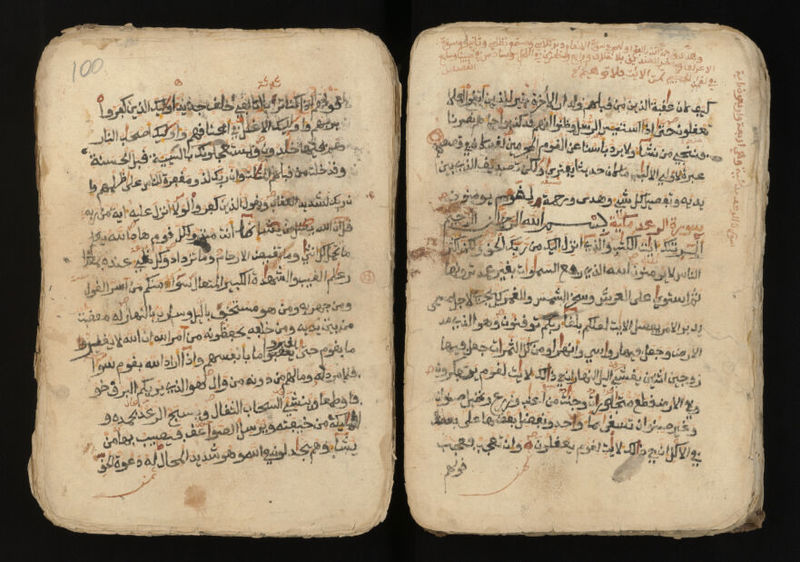 كيف كان عقبة الذين من قبلهم ولدار الاخرة خير للذين اتقوا افلا
تعقلون حتى اذا استيئس الرسل وظنوا انهم قد كذبوا جاءهم نصرنا
فننجي من نشاء ولا يرد باسنا عن القوم المجرمين لقد كان في قصصهم
عبرة لاولي الالبب ما كان حديثا يفترى ولكن تصديق الذي بين
يديه وتفصيل كل شيء وهدى ورحمة لقوم يومنون
سورة الرعد مكية بسم الله الرحمن الرحيم
المر تلك ايت الكتب والذي انزل اليك من ربك الحق ولكن اكثر
الناس لا يومنون الله الذي رفع السموات بغير عمد ترونها
ثم استوى على العرش وسخر الشمس والقمر كل يجري لاجل مسمى
يدبر الامر يفصل الايت لعلكم بلقاء ربكم توقنون وهو الذي مد
الارض وجعل فيها رواسي وانهرا ومن كل الثمرات جعل فيها
زوجين اثنين يغشي اليل النهار ان في ذلك لايت لقوم يتفكرون
وفي الارض قطع متجورات وجنت من اعنب وزرع ونخيل صنوان
وغير صنوان تسقى بماء واحد ونفضل بعضها على بعض
في الاكل ان في ذلك لايت لقوم يعقلون وان تعجب فعجب
قولهم
100
قولهم اذا كنا تربا انا لفي خلق جديد اوليك الذين كفروا
بربهم واوليك الاغلل في اعناقهم واوليك اصحاب النار
هم فيها خلدون ويستعجلونك بالسيية قبل الحسنة
وقد خلت من قبلهم المثلت وان ربك لذو مغفرة للناس على ظلمهم وا
ن ربك لشديد العقاب ويقول الذين كفروا لولا انزل عليه اية من ربه
انما انت منذر ولكل قوم هاد الله يعلم
ما تحمل كل انثى وما تغيض الارحام وما تزداد وكل شيء عنده بمقدار
علم الغيب والشهدة الكبير المتعال سواء منكم من اسر القول
ومن جهر به ومن هو مستخف باليل وسارب بالنهار له معقبت
من بين يديه ومن خلفه يحفظونه من امر الله ان الله لا يغير
ما بقوم حتى يغيروا ما بانفسهم واذا اراد الله بقوم سوءا
فلا مرد له وما لهم من دونه من وال هو الذي يريكم البرق خو
فا وطمعا وينشئ السحاب الثقال ويسبح الرعد بحمده و
المليكة من خيفته ويرسل الصواعق فيصيب بها من
يشاء وهم يجدلون في الله وهو شديد المحال له دعوة الحق